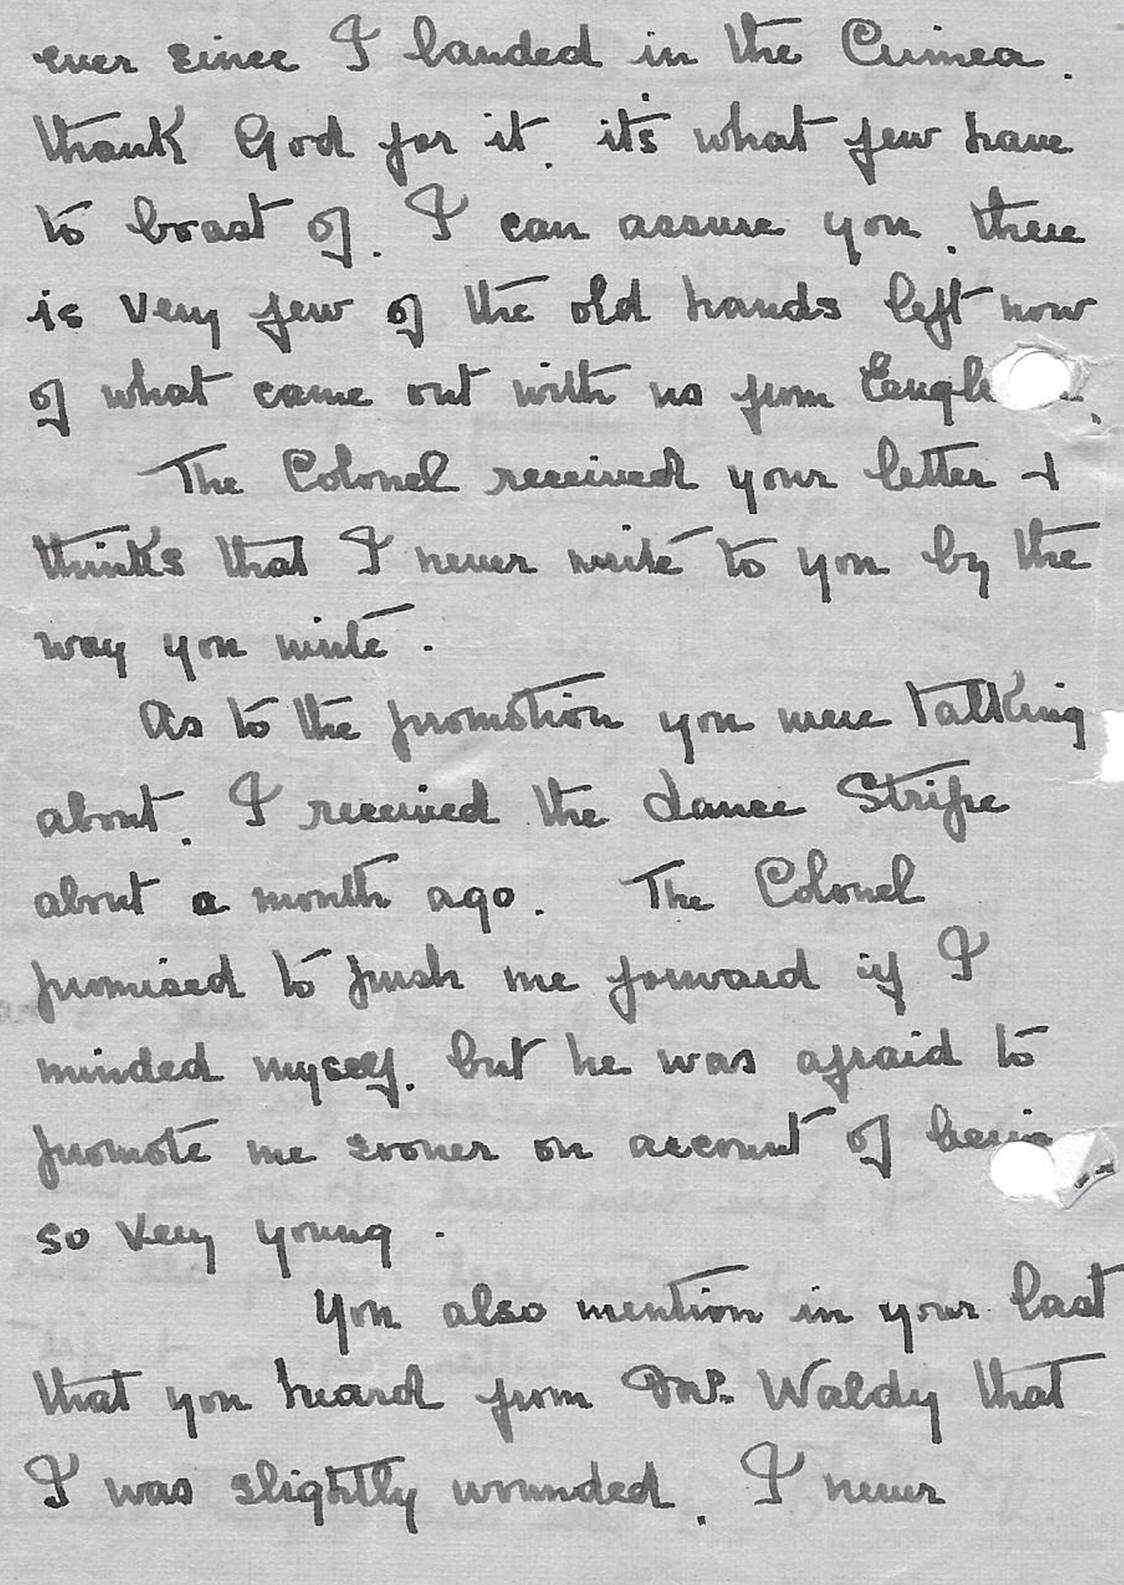 ever since I landed in the Crimea.
thank God for it. it's what few have
to boast of. I can assure you. there
is very few of the old hands left now
of what came out with us from Engl
The Colonel received your letter +
thinks that I never write to you by the
way you write.
As to the promotion you were talking
about. I received the Lance Stripe
about a month ago. The Colonel
promised to push me forward if I
minded myself. but he was afraid to
promote me sooner on account of bein
so very young.
You also mention in your last
that you heard from Mrs. Waldy that
I was slightly wounded. I never